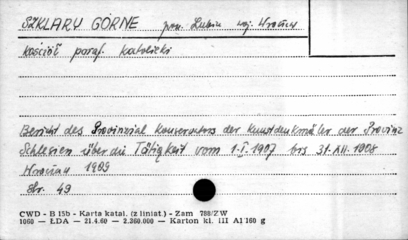 SZKLARY GÓRNE pow. Lubin woj. Wrocław
kościół paraf. katolicki
Bericht des Provinzial Konservators der Kunstdenkmäler der Provinz
Schlesien über die Tätigkeit vom 1.I.1907 bis 31.XII.1908
Wrocław 1909
str. 49
CWD - B 15b - Karta katal. (z liniat.) - Zam 788/ZW
1060 — ŁDA — 21.4.60 - 2.360.000 — Karton kl. III A1 160 g